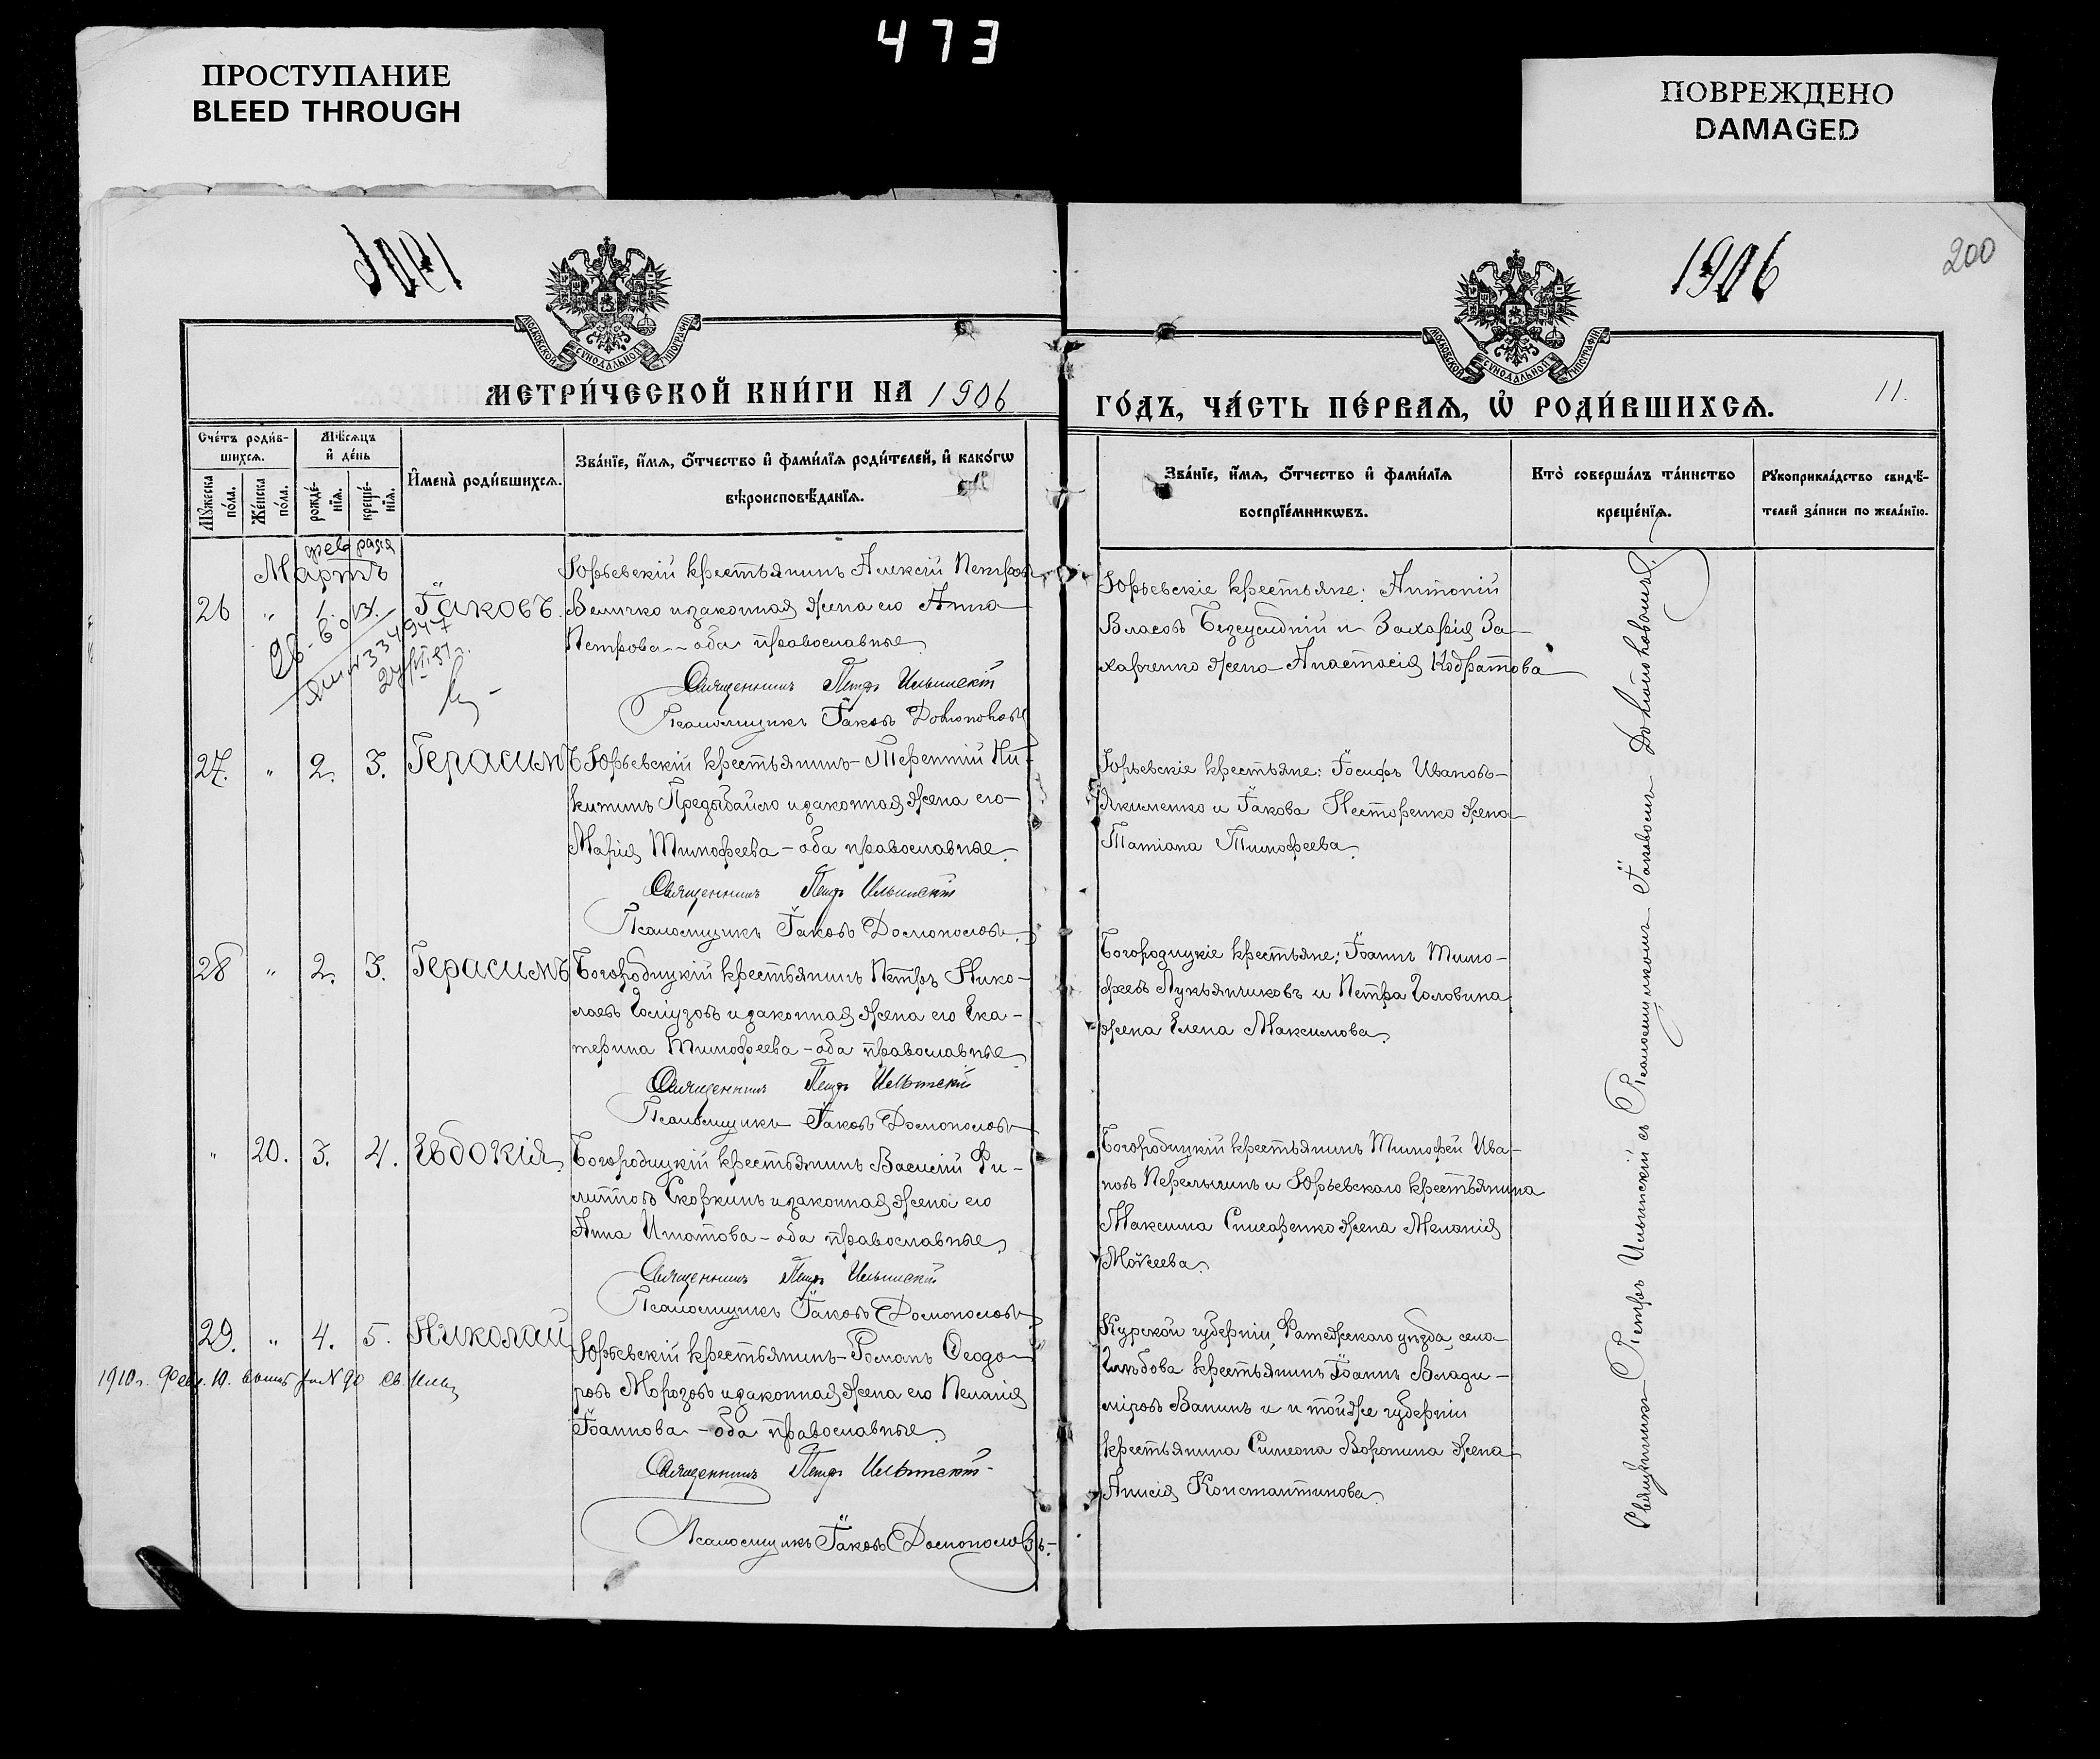 473
ПРОСТУПАНИЕ
BLEED THROUGH
ПОВРЕЖДЕНО
DAMAGED
1906
200
МОСКОВСКОЙ СѴНОДАЛЬНОЙ ТИПОГРАФІИ
МОСКОВСКОЙ СѴНОДАЛЬНОЙ ТИПОГРАФІИ
МЕТРИ́ЧЕСКОЙ КНИ́ГИ НА 1906
ГО́ДЪ, ЧА́СТЬ ПЕ́РВАЯ, Ѡ РОДИ́ВШИХСЯ.
11.
Сче́тъ роди́в-
шихся.
Мѣ́сяцъ
и де́нь
Мужеска по́ла.
Же́нска по́ла.
рожде́-
нія.
креще́-
нія.
Имена̀ роди́вшихся.
Зва́ніе, и́мя, о́тчество и фами́лія роди́телей, и како́гѡ
вѣроисповѣ́данія.
Зва́ніе, и́мя, о́тчество и фами́лія
воспріе́мникѡвъ.
Кто̀ соверша́лъ та́инство
креще́нія.
Рукоприкла́дство свидѣ́-
телей за́писи по жела́нію.
февраля
Мартъ
26 " 1. Іаковъ.
Юрьевскій крестьянинъ Алексій Петровъ
Величко и законная жена его Анна
Петрова - оба православные
Священникъ Петръ Ильинскій
Псаломщикъ Іаковъ Домоноловъ
Юрьевскіе крестьяне: Антоній
Власовъ и Захарія За-
харченко жена Анастасія Кодратова
27. " 2. 3. Герасимъ
Юрьевскій крестьянинъ Терентій Ни-
китинъ Предыбайло и законная жена его
Марія Тимофеева - оба православные
Священникъ Петръ Ильинскій
Псаломщикъ Іаковъ Домоноловъ
Юрьевскіе крестьяне: Іосифъ Ивановъ
Якименко и Іакова Несторенко жена
Татіана Тимофеева.
28 " 2. 3. Герасимъ
Богородицкій крестьянинъ Петръ Нико-
лаевъ и законная жена его Ека-
терина Тимофеева - оба православные
Священникъ Петръ Ильинскій
Псаломщикъ Іаковъ Домоноловъ
Богородицкіе крестьяне: Іоаннъ Тимо-
феевъ Лукьянчиковъ и Петра Головина
жена Елена Максимова.
" 20. 3. 4. Евдокія
Богородицкій крестьянинъ Василій Фи-
липповъ Скоркинъ и законная жена его
Анна Ипатова - оба православные
Священникъ Петръ Ильинскій
Псаломщикъ Іаковъ Домоноловъ
Богородицкій крестьянинъ Тимофей Ива-
новъ и Юрьевскаго крестьянина
Максима жена Меланія
Моѵсеева.
29. " 4. 5. Николай
1910 г. Фев. 10. № 90
Юрьевскій крестьянинъ Романъ Ѳеодо-
ровъ Морозовъ и законная жена его Пелагія
Іоаннова - оба православные
Священникъ Петръ Ильинскій
Псаломщикъ Іаковъ Домоноловъ
Курской губерніи, Фатежскаго уѣзда, села
Глѣбова крестьянинъ Іоаннъ Влади-
міровъ Ванинъ и и тойже губерніи
крестьянина Симеона Воронина жена
Анисія Константинова.
Священникъ Петръ Ильинскій съ Псаломщикомъ Іаковомъ